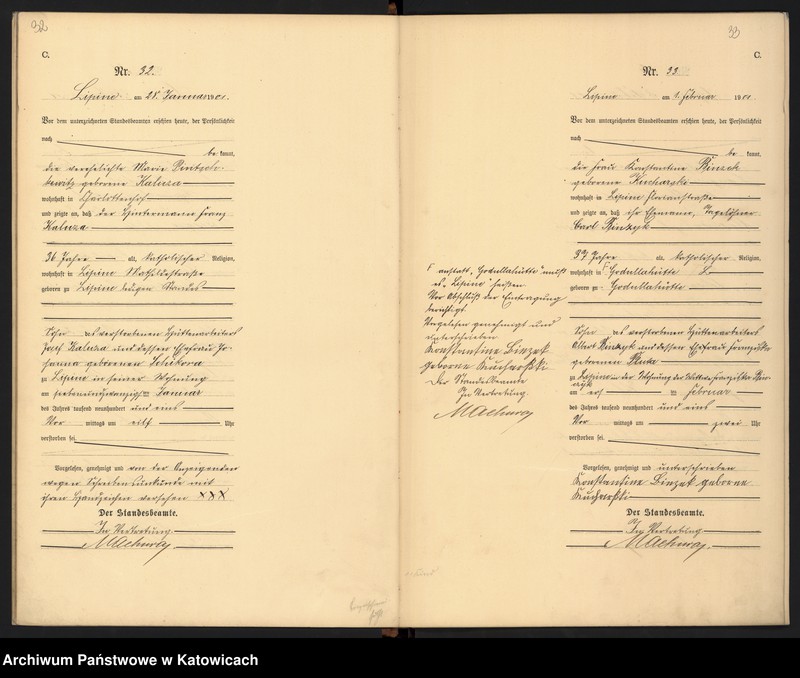 32
C.
Nr. 32.
Lipine am 28. Januar 1901.
Vor dem unterzeichneten Standesbeamten erschien heute, der Persönlichkeit
nach
be kannt,
die verehelichte Marie
geborene Kaluza
wohnhaft in Charlottenhof
und zeigte an, daß der Hüttenmann Franz
Kaluza
36 Jahre alt, katholischer Religion,
wohnhaft in Lipine Mathildestraße
geboren zu Lipine ledigen Standes
Sohn des verstorbenen Hüttenarbeiters
Josef Kaluza und dessen Ehefrau Jo-
hanna geborenen
zu Lipine in seiner Wohnung
am siebenundzwanzigsten Januar
des Jahres tausend neunhundert und eins
Vor mittags um elf Uhr
verstorben sei.
Vorgelesen, genehmigt und von der Anzeigenden
wegen Schreibensunkunde mit
ihren Handzeichen versehen XXX
Der Standesbeamte.
In Vertretung.
Machuray
33
C.
Nr. 33.
Lipine am 1. Februar 1901
Vor dem unterzeichneten Standesbeamten erschien heute, der Persönlichkeit
nach
be kannt,
die Frau Konstantine Binzek
geborene Kucharska
wohnhaft in Lipine Florianstraße
und zeigte an, daß ihr Ehemann, Tagelöhner
Carl Binzyk
37 Jahre alt, katholischer Religion,
wohnhaft in F Godullahütte
geboren zu Godullahütte
Sohn des verstorbenen Hüttenarbeiters
Albert Binzyk und dessen Ehefrau Franziska
geborenen
zu Lipine in der Wohnung der Wittwe Franziska Bin-
zyk
am ersten Februar
des Jahres tausend neunhundert und eins
Vor mittags um zwei Uhr
verstorben sei.
Vorgelesen, genehmigt und unterschrieben
Konstantine Binzek geborene
Kucharski
Der Standesbeamte.
In Vertretung
Machuray.
F anstatt „Godullahütte" muß
es „Lipine" heißen
Vor Abschluß der Eintragung
berichtigt.
Vorgelesen genehmigt und
unterschrieben
Konstantine Binzek
geborne Kucharski
Der Standesbeamte
In Vertretung.
Machuray
Archiwum Państwowe w Katowicach